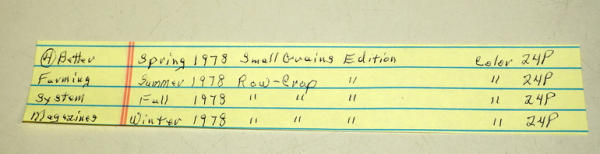 (4) Better Spring 1978 Small Grains Edition Color 24P
Farming Summer 1978 Row-Crop " " 24P
System Fall 1978 " " " " 24P
Magazines Winter 1978 " " " " 24P